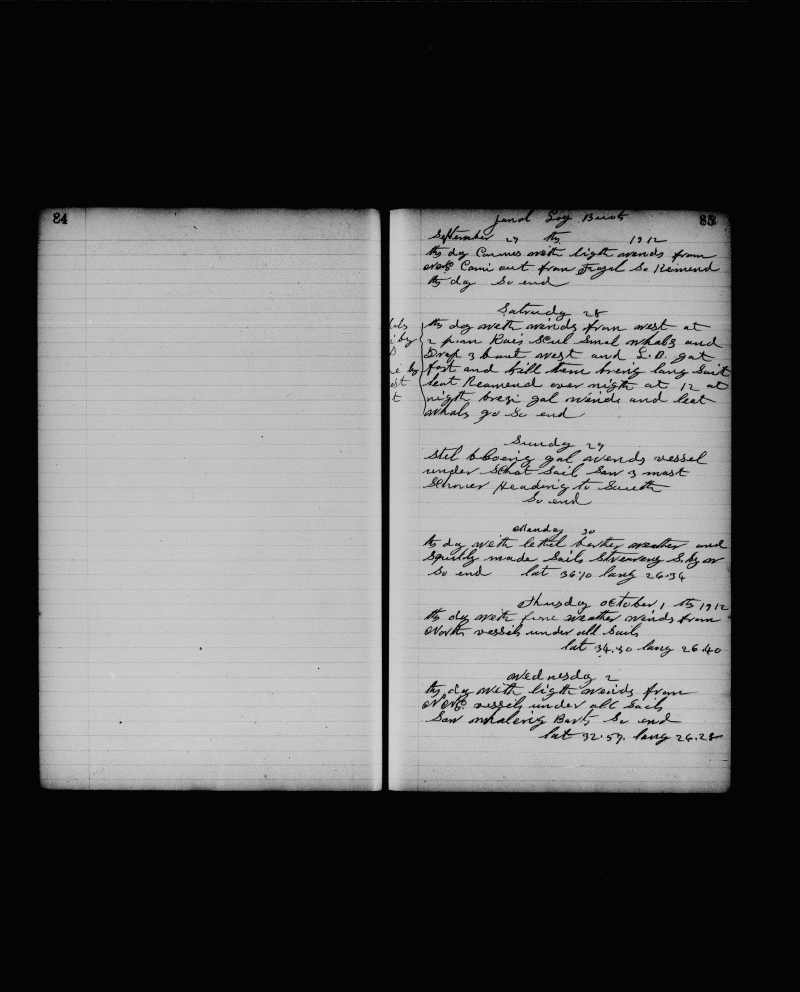 84
85
Janol Log Buch
September 27 th 1912
ths day Coumes with ligth wends from
NNE Cami out from Fayal So Remend
ths day So end
Satruday 28
ths day with winds from west at
2 p.m Rais Scul Smal whals and
Drop 3 baut west and L.B. gat
fost and kill tem breng lang Sait
leat Reamend over nigth at 12 at
nigth brezi gal winds and leet
whals go So end
Sunday 29
Stil bloeing gal wends vessel
under Schot Sail Saw 3 mast
Schouer Heading to Saueth
So end
Monday 30
ths day with letel better weather and
Squilly made Sails S. by W
So end lat 36.10 lang 26.34
Thusday October 1 th 1912
ths day with fine weather winds from
North vessels under all Sails
lat 34.30 lang 26.40
Wednesday 2
ths day with ligth wends from
NNE vessels under all Sails
Saw whaleing Bark So end
lat 32.57 lang 26.28